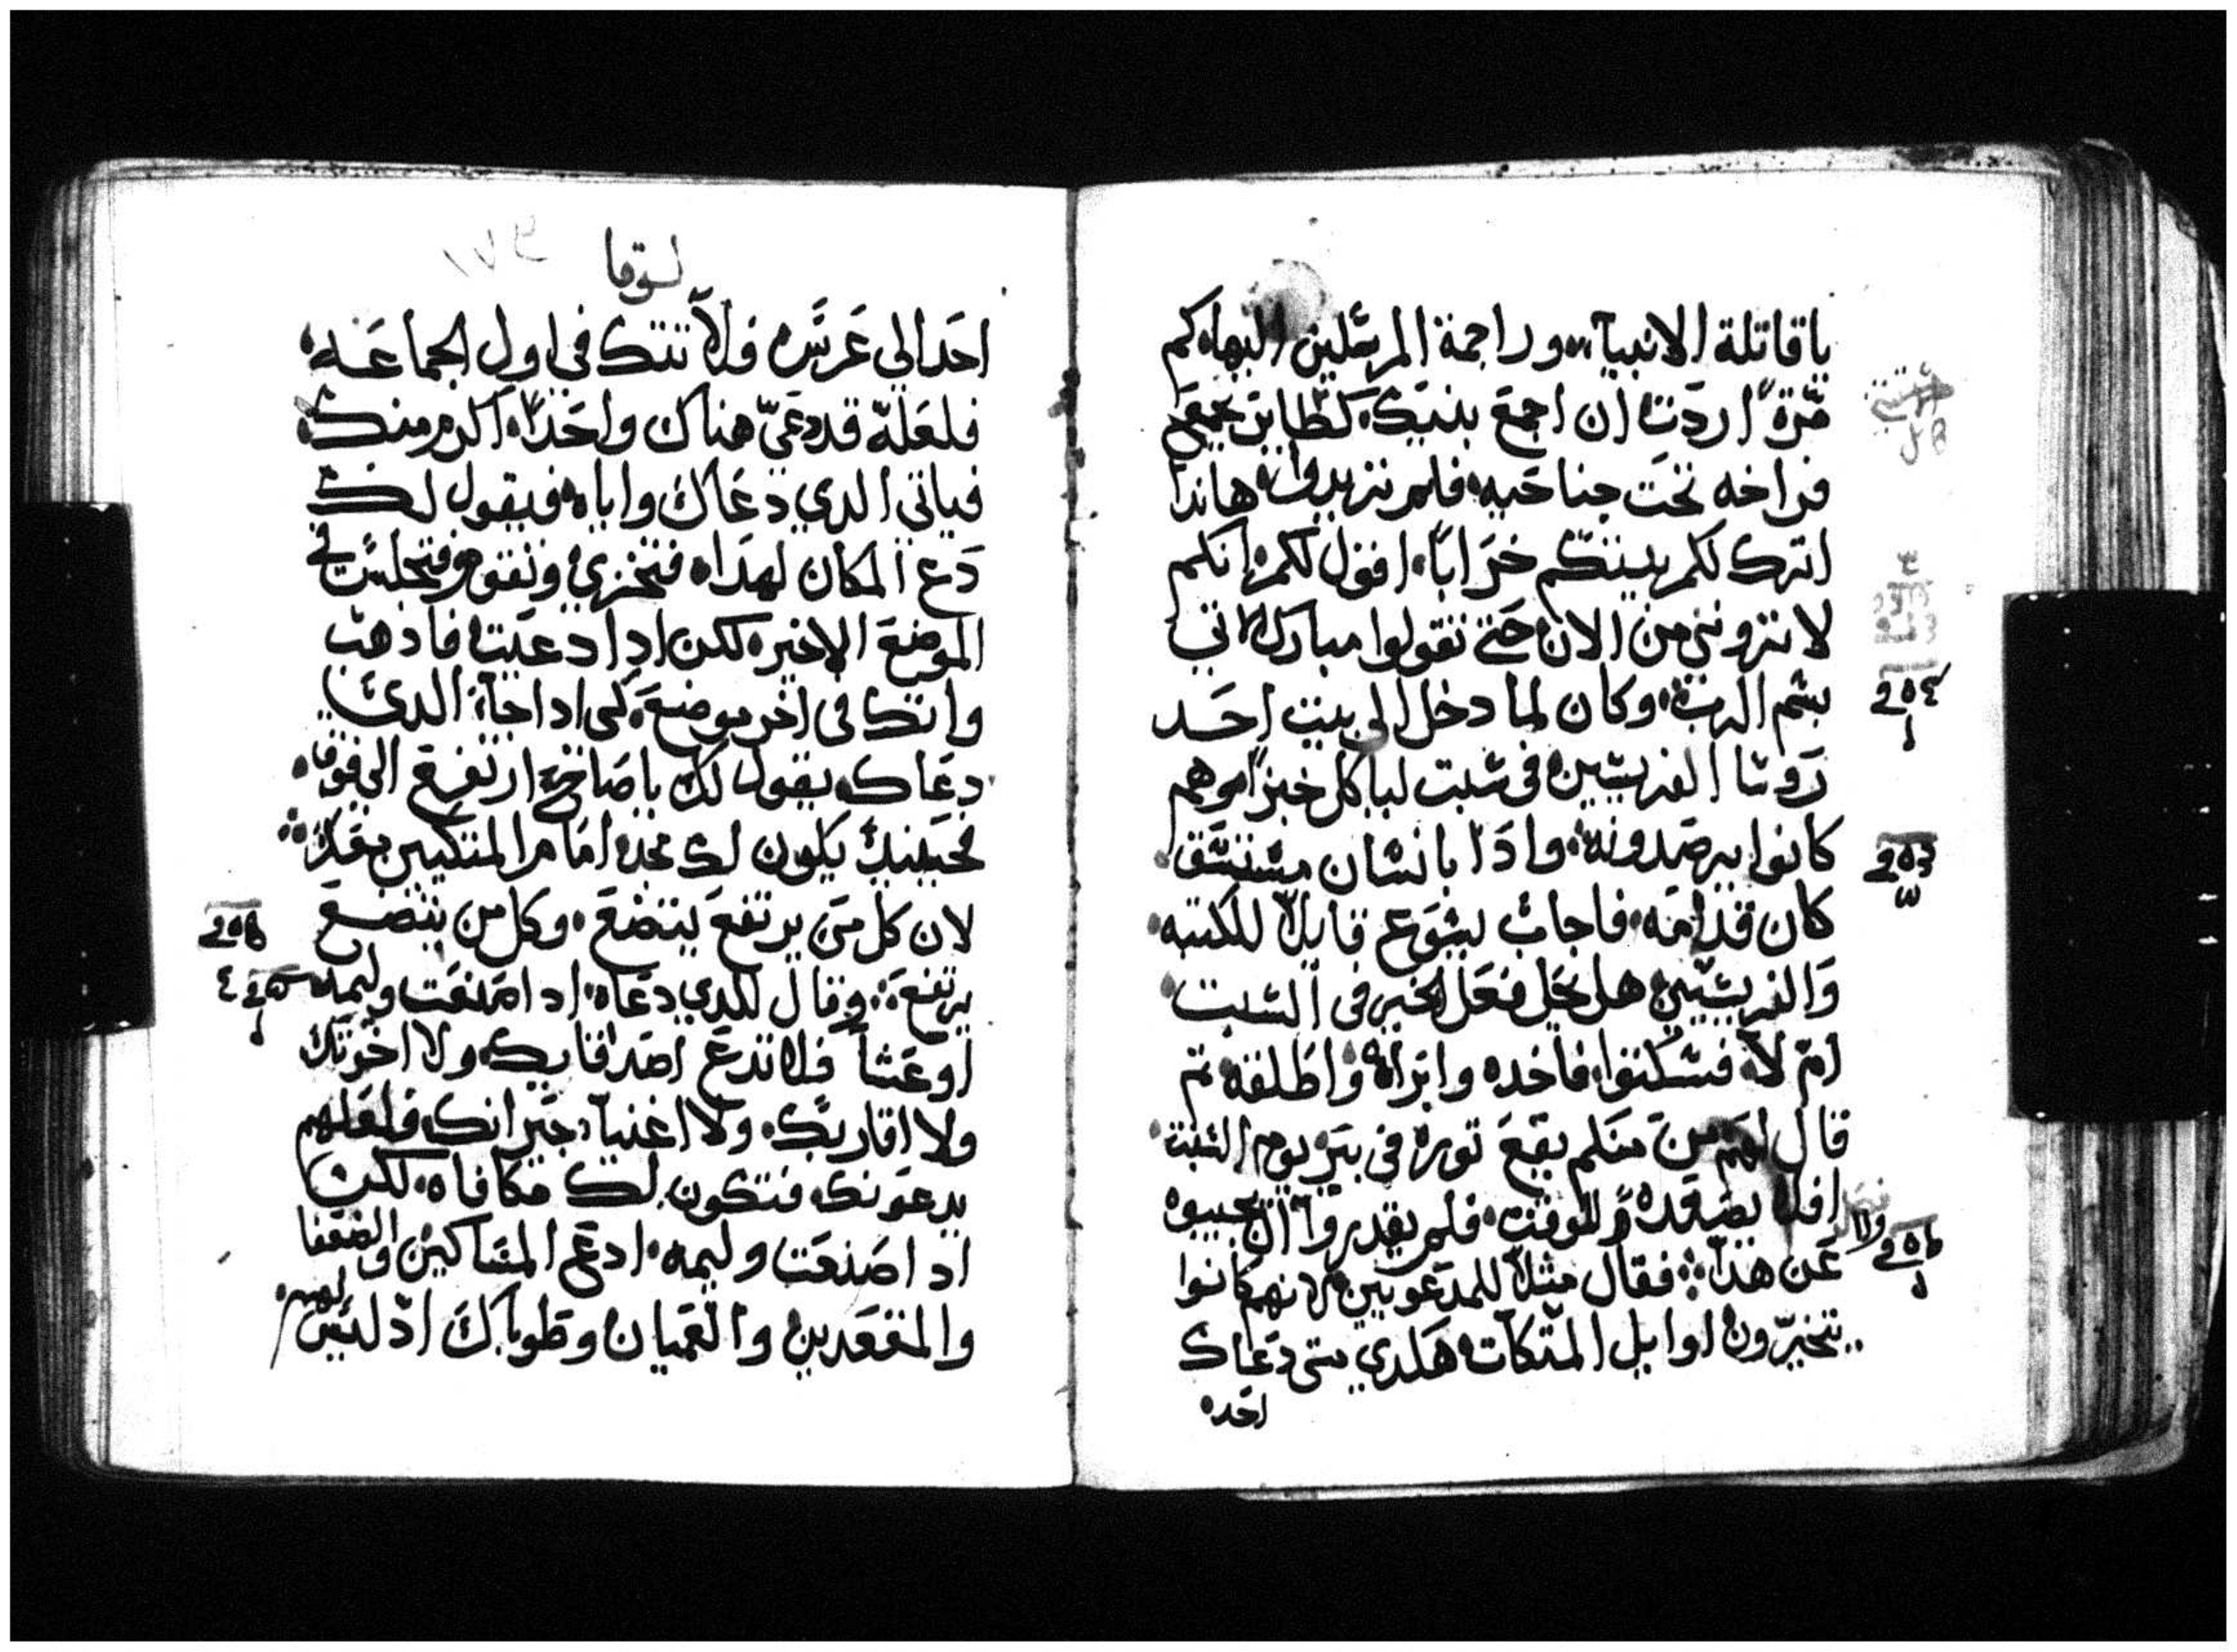 ياقاتلة الانبيآء وراجمة المرسلين اليهاه كم
مّرةً اردَت ان اجمعَ بنيَك كطاير يجمعَ
فراخه تحَت جناحَيه فلم تريدوا هاندا
اترك لكم بيتكم خَراباً اقول لكم انكم
لا تروني من الان حَتي تقولوا مبارك الاتي
بسم الرب وكان لما دخل الي بيت احَد
رَوسا الفريسين في سَبت لياكل خبزاً وهم
كانوا يرصَدونه وادَا بانسان مستسَق
كان قدامَه فاجابَ يسَوع قايلاً للكتبه
وَالفريسَين هل يحَل فعَل الخير في السَبت
ام لآ فسَكتوا فاخده وابراه واطَلقه تم
قال لهَم مَن منَكم يقعَ توره في بيَر يوم السَبت
افلا يصَعَده للوقت فلم يقدروا ان يجيبوه
عَن هدَا فقال مثلاً للمدعَويين لانهم كانوا
يتخيّرون اوايل المتكآت هَكدي متي دعَاك
احَده
لوقا
١٧٤
احَدالي عَرسَه فلآ تتك في اول الجماعَه
فلعَلهّ قد دعَيّ هناك واحَداً اكرم منك
فياتي الدي دعَاك واياه فيقول لك
دَع المكان لهدَاه فتخزي وتقوم فتجلسَ في
الموضعَ الاخير لكن ادا دعَيت فادهب
واتك في اخر موضعَ لكي ادا جآء الدي
دعَاك يقول لك ياصَاحَب ارتفع الي فوقَ
فحَينيد يكون لك مجد امَام المتكيين معَك
لان كل مَن يرتفعَ يتضعَ وكل من يتضعَ
يرتفعَ وقال للدي دعَاه ادا صَنعَت وليمه
اوعَشآ فلا تدعَ اصَدقايك ولا اخوتك
ولا اقاربَك ولا اغنيآء جيَرانك فلعَلهم
يدعَونك فتكون لك مكافاه لكن
ادا صَنعَت وليمه ادعَ المسَاكين والضعَفا
والمقعَدين والعَميان وطَوباك اد ليسَ لهم